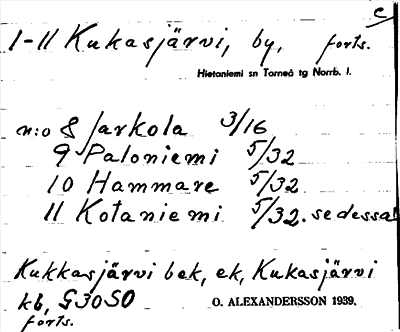 c
1-11 Kukasjärvi, by, forts.
Hietaniemi sn Torneå tg Norrb. l.
n:o 8 Jarkola 3/16
9 Paloniemi 5/32
10 Hammare 5/32
11 Kotaniemi 5/32. se dessa!
Kukkasjärvi bek, ek, Kukasjärvi
kb, G30SO O. ALEXANDERSSON 1939.
forts.